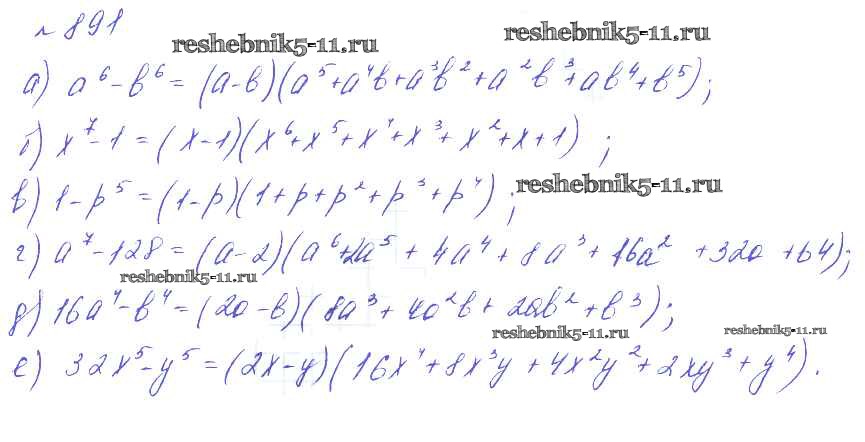 № 891
reshebnik5-11.ru reshebnik5-11.ru
а) a⁶-b⁶=(a-b)(a⁵+a⁴b+a³b²+a²b³+ab⁴+b⁵);
б) x⁷-1=(x-1)(x⁶+x⁵+x⁴+x³+x²+x+1);
в) 1-p⁵=(1-p)(1+p+p²+p³+p⁴); reshebnik5-11.ru
г) a⁷-128=(a-2)(a⁶+2a⁵+4a⁴+8a³+16a²+32a+64);
reshebnik5-11.ru
д) 16a⁴-b⁴=(2a-b)(8a³+4a²b+2ab²+b³);
reshebnik5-11.ru reshebnik5-11.ru
е) 32x⁵-y⁵=(2x-y)(16x⁴+8x³y+4x²y²+2xy³+y⁴).